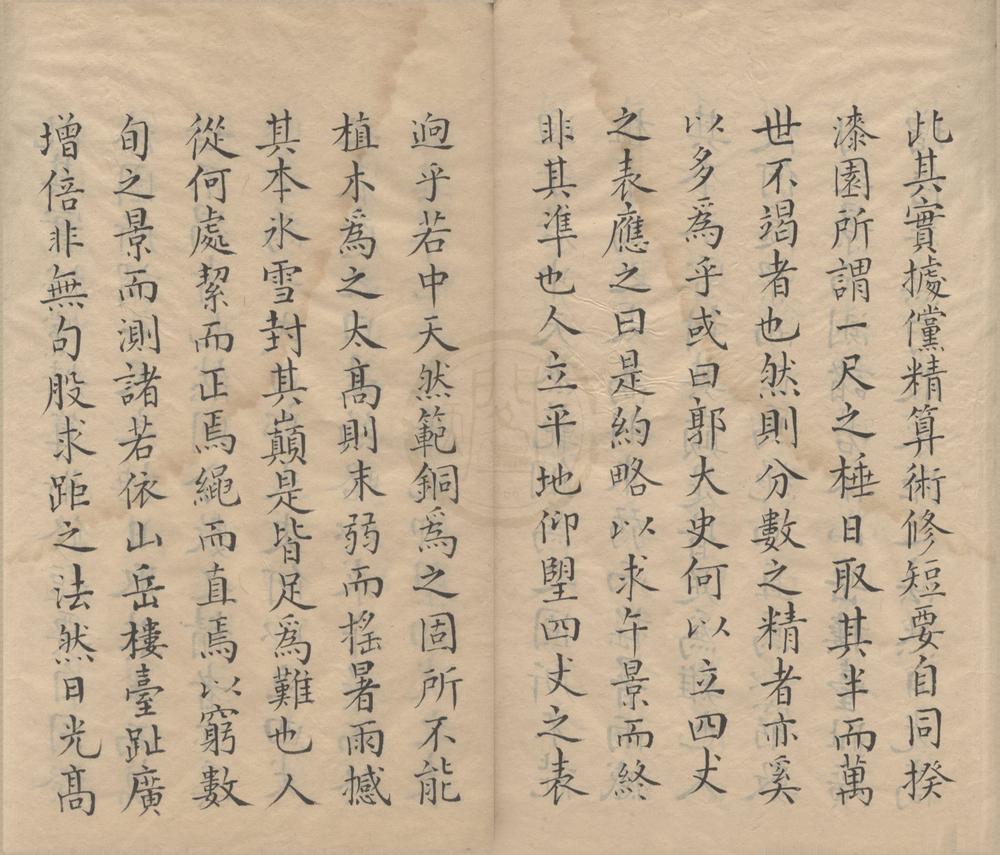 此其實據儻精算術修短要自同揆
漆園所謂一尺之棰日取其半而萬
世不竭者也然則分數之精者亦奚
以多爲乎或曰郭大史何以立四丈
之表應之曰是約略以求午景而終
非其準也人立平地仰朢四丈之表
逈乎若中天然範銅爲之固所不能
植木爲之太高則末弱而搖暑雨撼
其本氷雪封其巔是皆足爲難也人
從何處絜而正焉繩而直焉以窮數
旬之景而測諸若依山岳樓臺趾廣
增倍非無句股求距之法然日光高